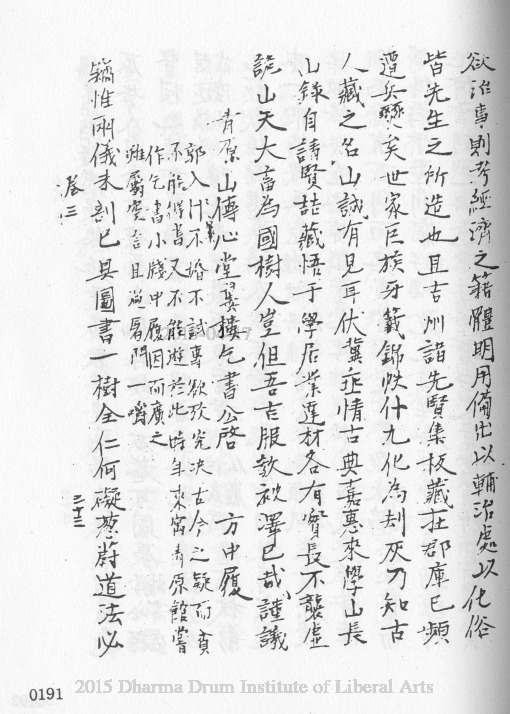 欲治事則考經濟之籍體明用備出以輔治處以化俗
皆先生之所造也且吉州諸先賢集板藏在郡庫已頻
遭兵燹矣世家巨族牙籤錦帙什九化為刦灰乃知古
人藏之名山誠有見耳伏冀逖情古典嘉惠來學山長
山錄自詩賢誌藏悟于學居業達材各有實長不襲虛
詭山天大畜為國樹人豈但吾吉服教被澤已哉謹議
青原山傳心堂翼樓乞書公啓 方中履
郭入汁不婚不試專欲攷究决古今之疑而貧
不能得書又不能遊於此時年來寓青原舘嘗
作乞書小牋中履因而廣之
雖屬空言且過屠門一嚼
竊惟兩儀未剖已具圖書一樹全仁何礙蔥蔚道法必
卷三
二十三
0191
2015 Dharma Drum Institute of Liberal Arts